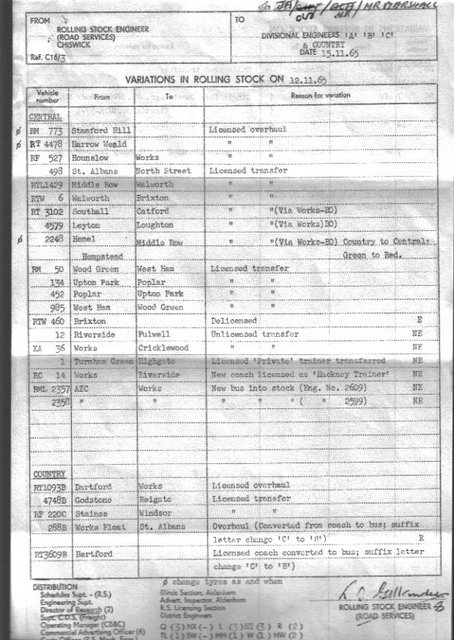 FROM
ROLLING STOCK ENGINEER
(ROAD SERVICES)
CHISWICK
Ref. C16/3
TO
DIVISIONAL ENGINEERS 'A' 'B' 'C'
& COUNTRY
DATE 15.11.65
MR MARSHALL
VARIATIONS IN ROLLING STOCK ON 12.11.65
Vehicle number From To Reason for variation
CENTRAL
ø RM 773 Stamford Hill Licensed overhaul
ø RT 4478 Harrow Weald " "
RF 527 Hounslow Works " "
498 St. Albans North Street Licensed transfer
RTL1429 Middle Row Walworth " "
RTW 6 Walworth Brixton " "
RT 3102 Southall Catford " "(Via Works-EO)
4579 Leyton Loughton " "(Via Works)EO)
ø 2248 Hemel Middle Row " "(Via Works-EO) Country to Central:
Hempstead Green to Red.
RM 50 Wood Green West Ham Licensed transfer
134 Upton Park Poplar " "
452 Poplar Upton Park " "
985 West Ham Wood Green " "
RTW 460 Brixton Delicensed E
12 Riverside Fulwell Unlicensed transfer NE
XA 36 Works Cricklewood " " NE
1 Turnham Green Highgate Licensed 'Private' trainer transferred NE
RC 14 Works Riverside New coach licensed as 'Hackney Trainer' NE
RML 2357 AEC Works New bus into stock (Eng. No. 2609) NE
2358 " " " " " ( " 2599) NE
COUNTRY
RT1093B Dartford Works Licensed overhaul
4748B Godstone Reigate Licensed transfer
RF 220C Staines Windsor " "
288B Works Float St. Albans Overhaul (Converted from coach to bus; suffix
letter change 'C' to 'B') E
RT3609B Hertford Licensed coach converted to bus; suffix letter
change 'C' to 'B')
ø change tyres as and when
DISTRIBUTION
Schedules Supt.- (R.S.)
Engineering Supt.
Director of Research (2)
Supt. C.D.S. (Freight)
Operating Manager (CB&C)
Commercial Advertising Officer (6)
Illinois Section, Aldenham
Advert. Inspector, Aldenham
R.S. Licensing Section
District Engineers
Q (3) NX (-) L (3) ET (3) R (2)
TL (1) SW (-) MH (1) W (1) HW (2)
ROLLING STOCK ENGINEER
(ROAD SERVICES)